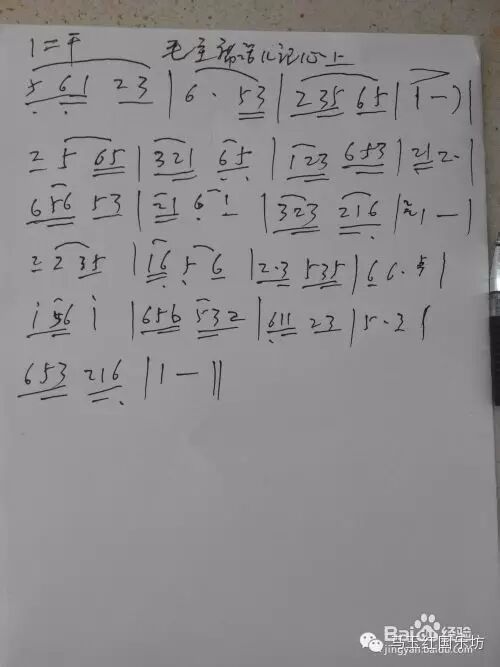 1=F 毛主席话儿记心上
5 61 23 | 6· 53 | 235 65 | 1-) |
2 5 65 | 321 65 | 123 653 | 21 2· |
656 53 | 21 6 1 | 323 216 | 21 - |
2 2 35 | 16 5 6 | 2·3 535 | 6 6·
i 56 i | 656 532 | 611 23 | 5·3 |
653 216 | 1 - ||
Bai 百度经验
马玉红国乐坊
jingyan.baidu.com